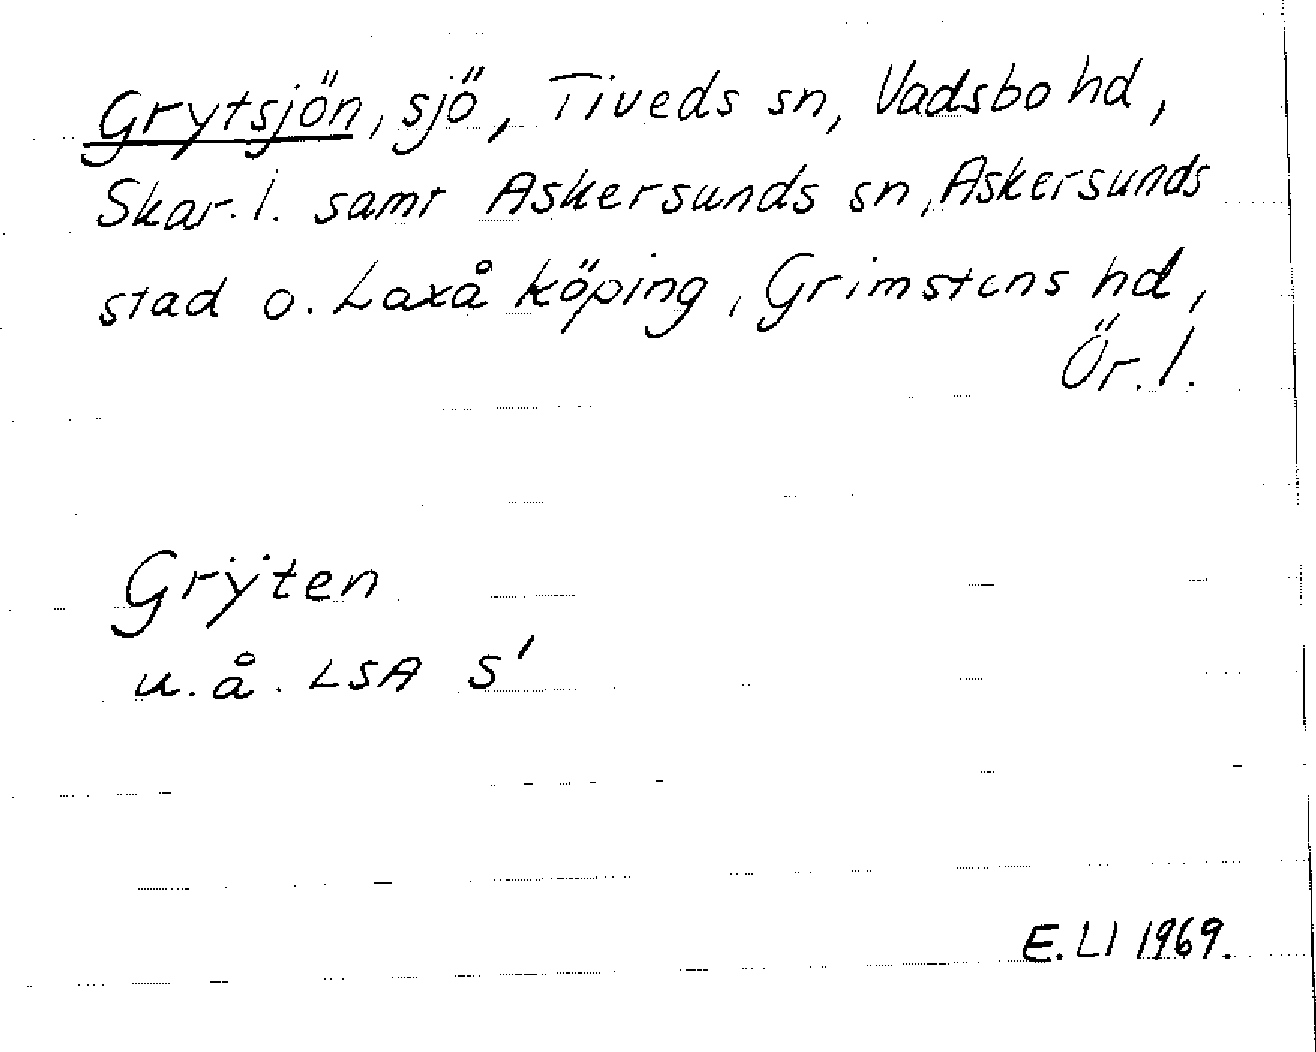 Grytsjön, sjö, Tiveds sn, Vadsbo hd,
Skar. l. samt Askersunds sn, Askersunds
stad o. Laxå köping, Grimstens hd,
Ör. l.
Grÿten
u.å. LSA S'
E. LI 1969.